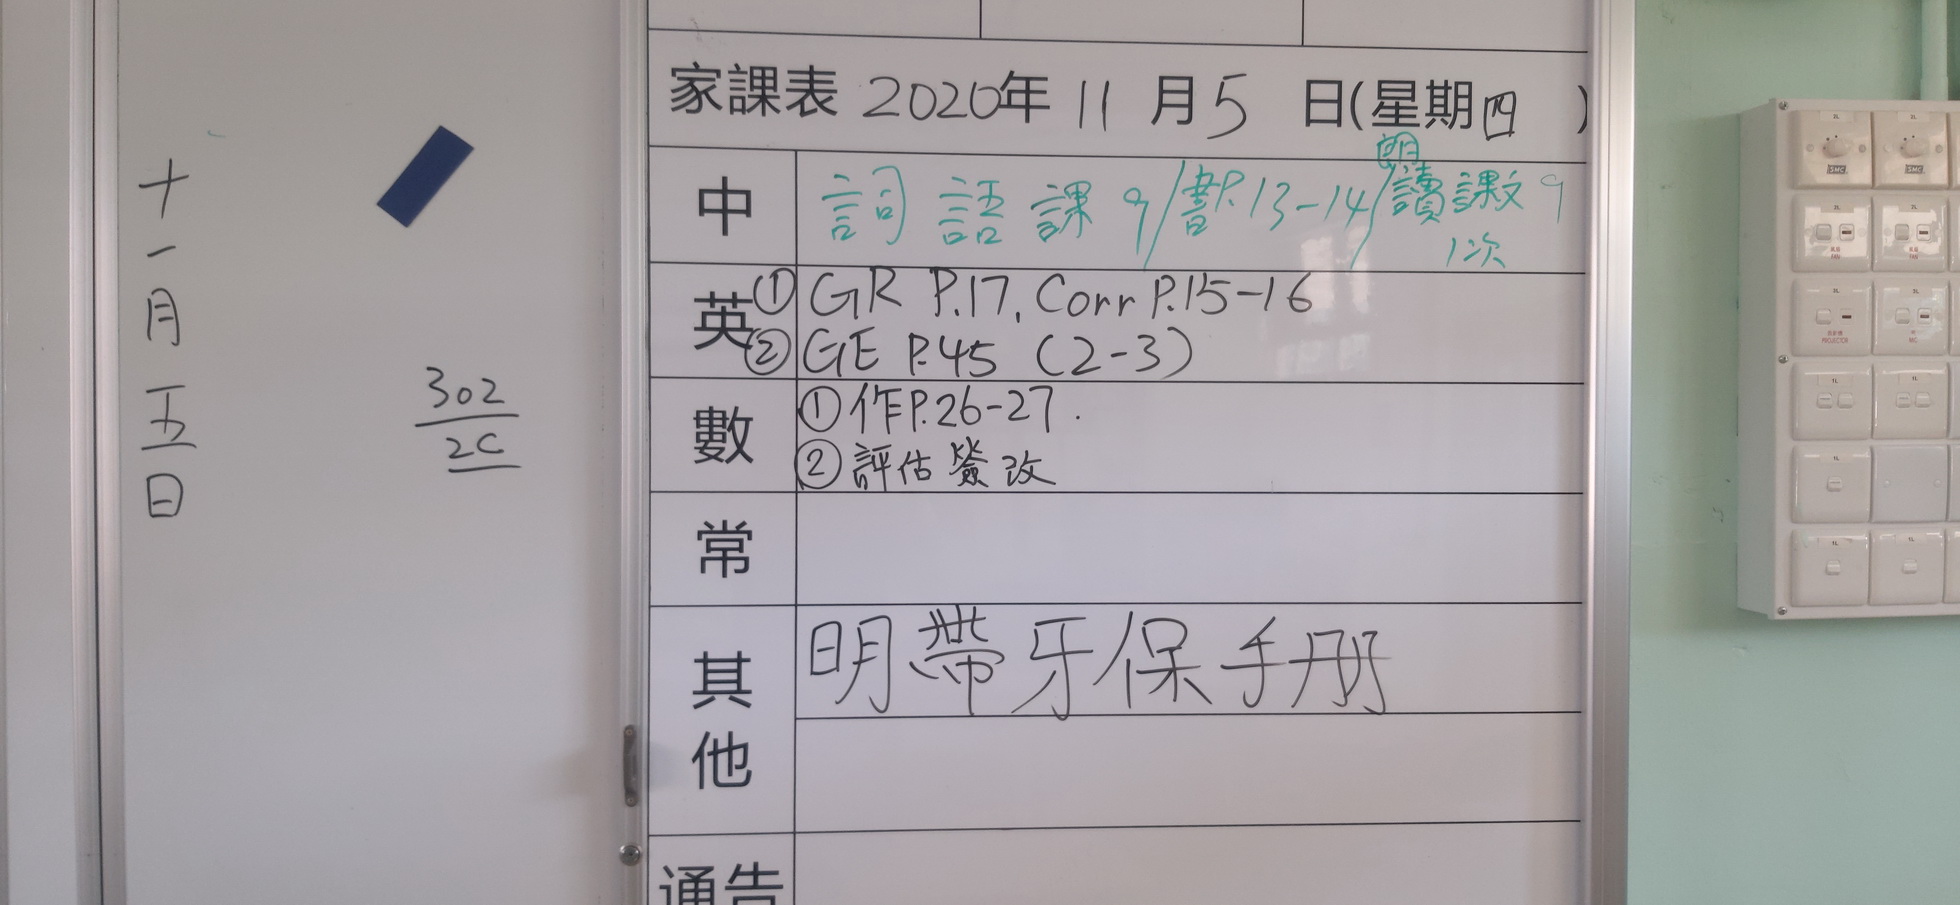 十一月五日
302
2C
家課表 2020年 11 月 5 日(星期四 )
中 詞語課9/書P.13-14/讀課文9
明
1次
英 ① GR P.17, Corr P.15-16
② GE P.45 (2-3)
數 ① 作P.26-27.
② 評估簽改
常
其他 明帶牙保手册
通告